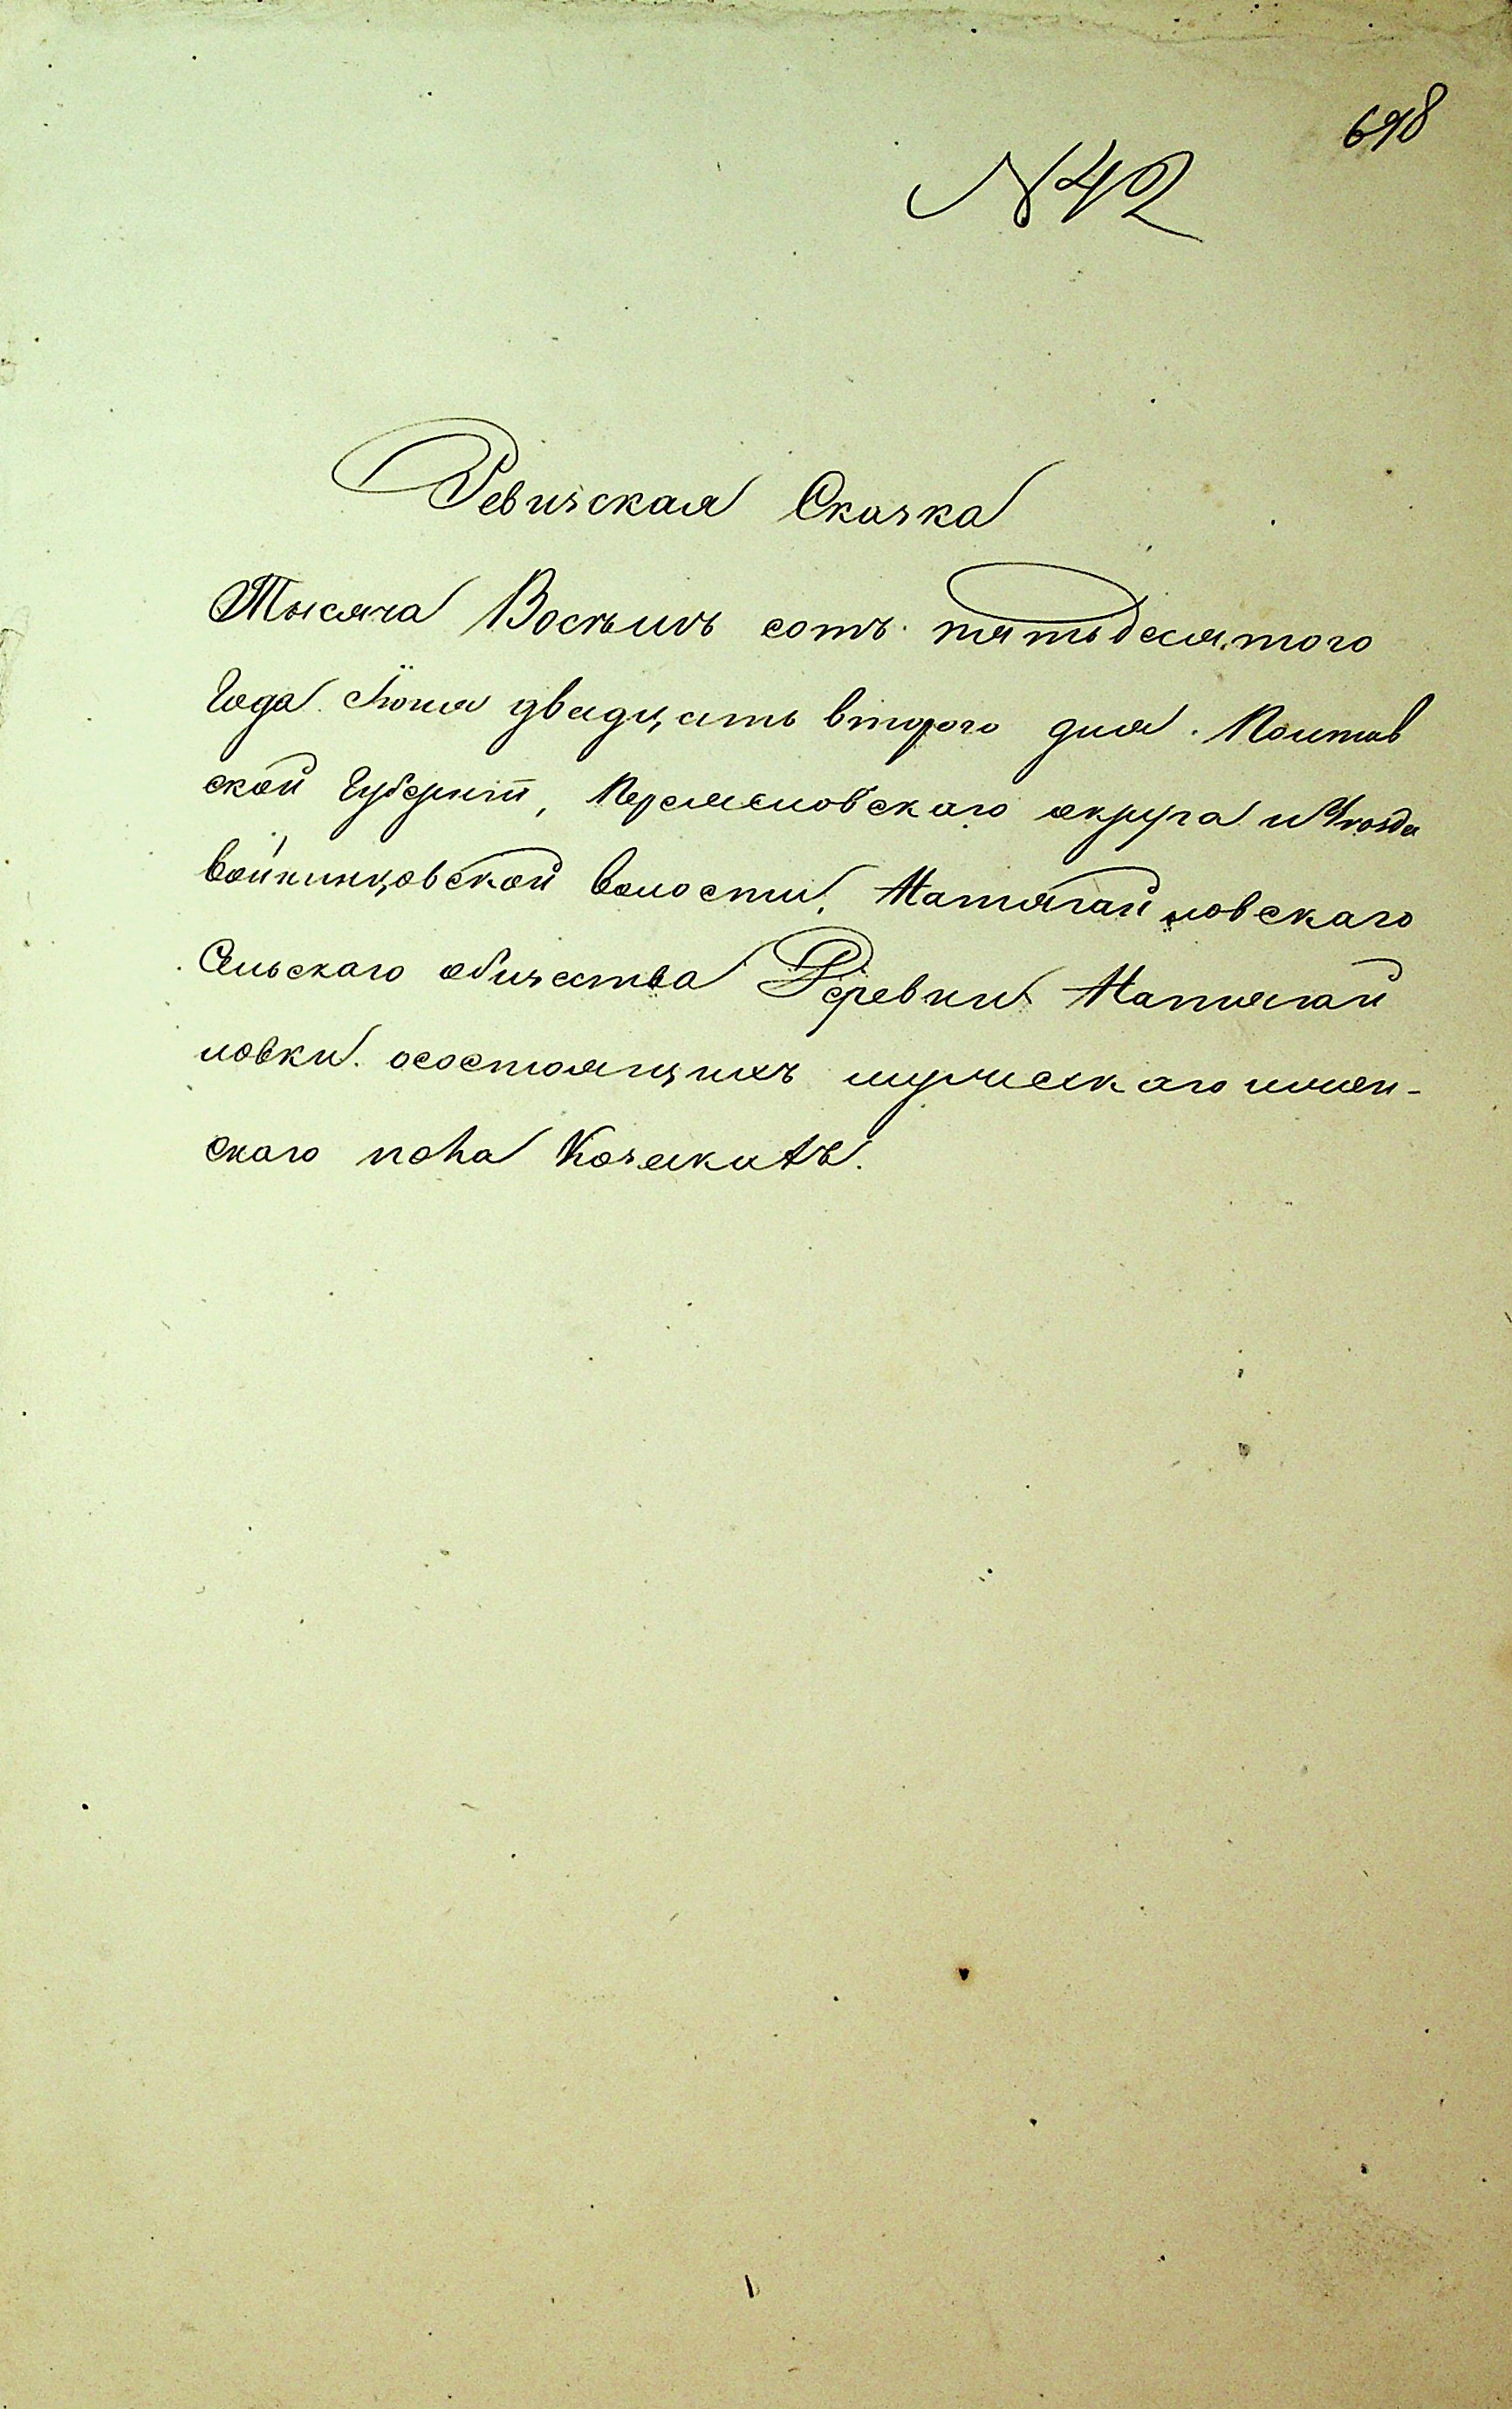 698
N 42
Ревизская Сказка
Тысяча Восѣмъ сотъ пятьдесятого
Года Іюня двадцать второго дня. Полтав
ской Губерніи, Переяславского округа и Уезда
войнинцовской волости, Матягай ловскаго
Сельскаго общества Деревни Матягай
ловки. осостоящихъ мужескаго иженс-
скаго пола Козаковъ.